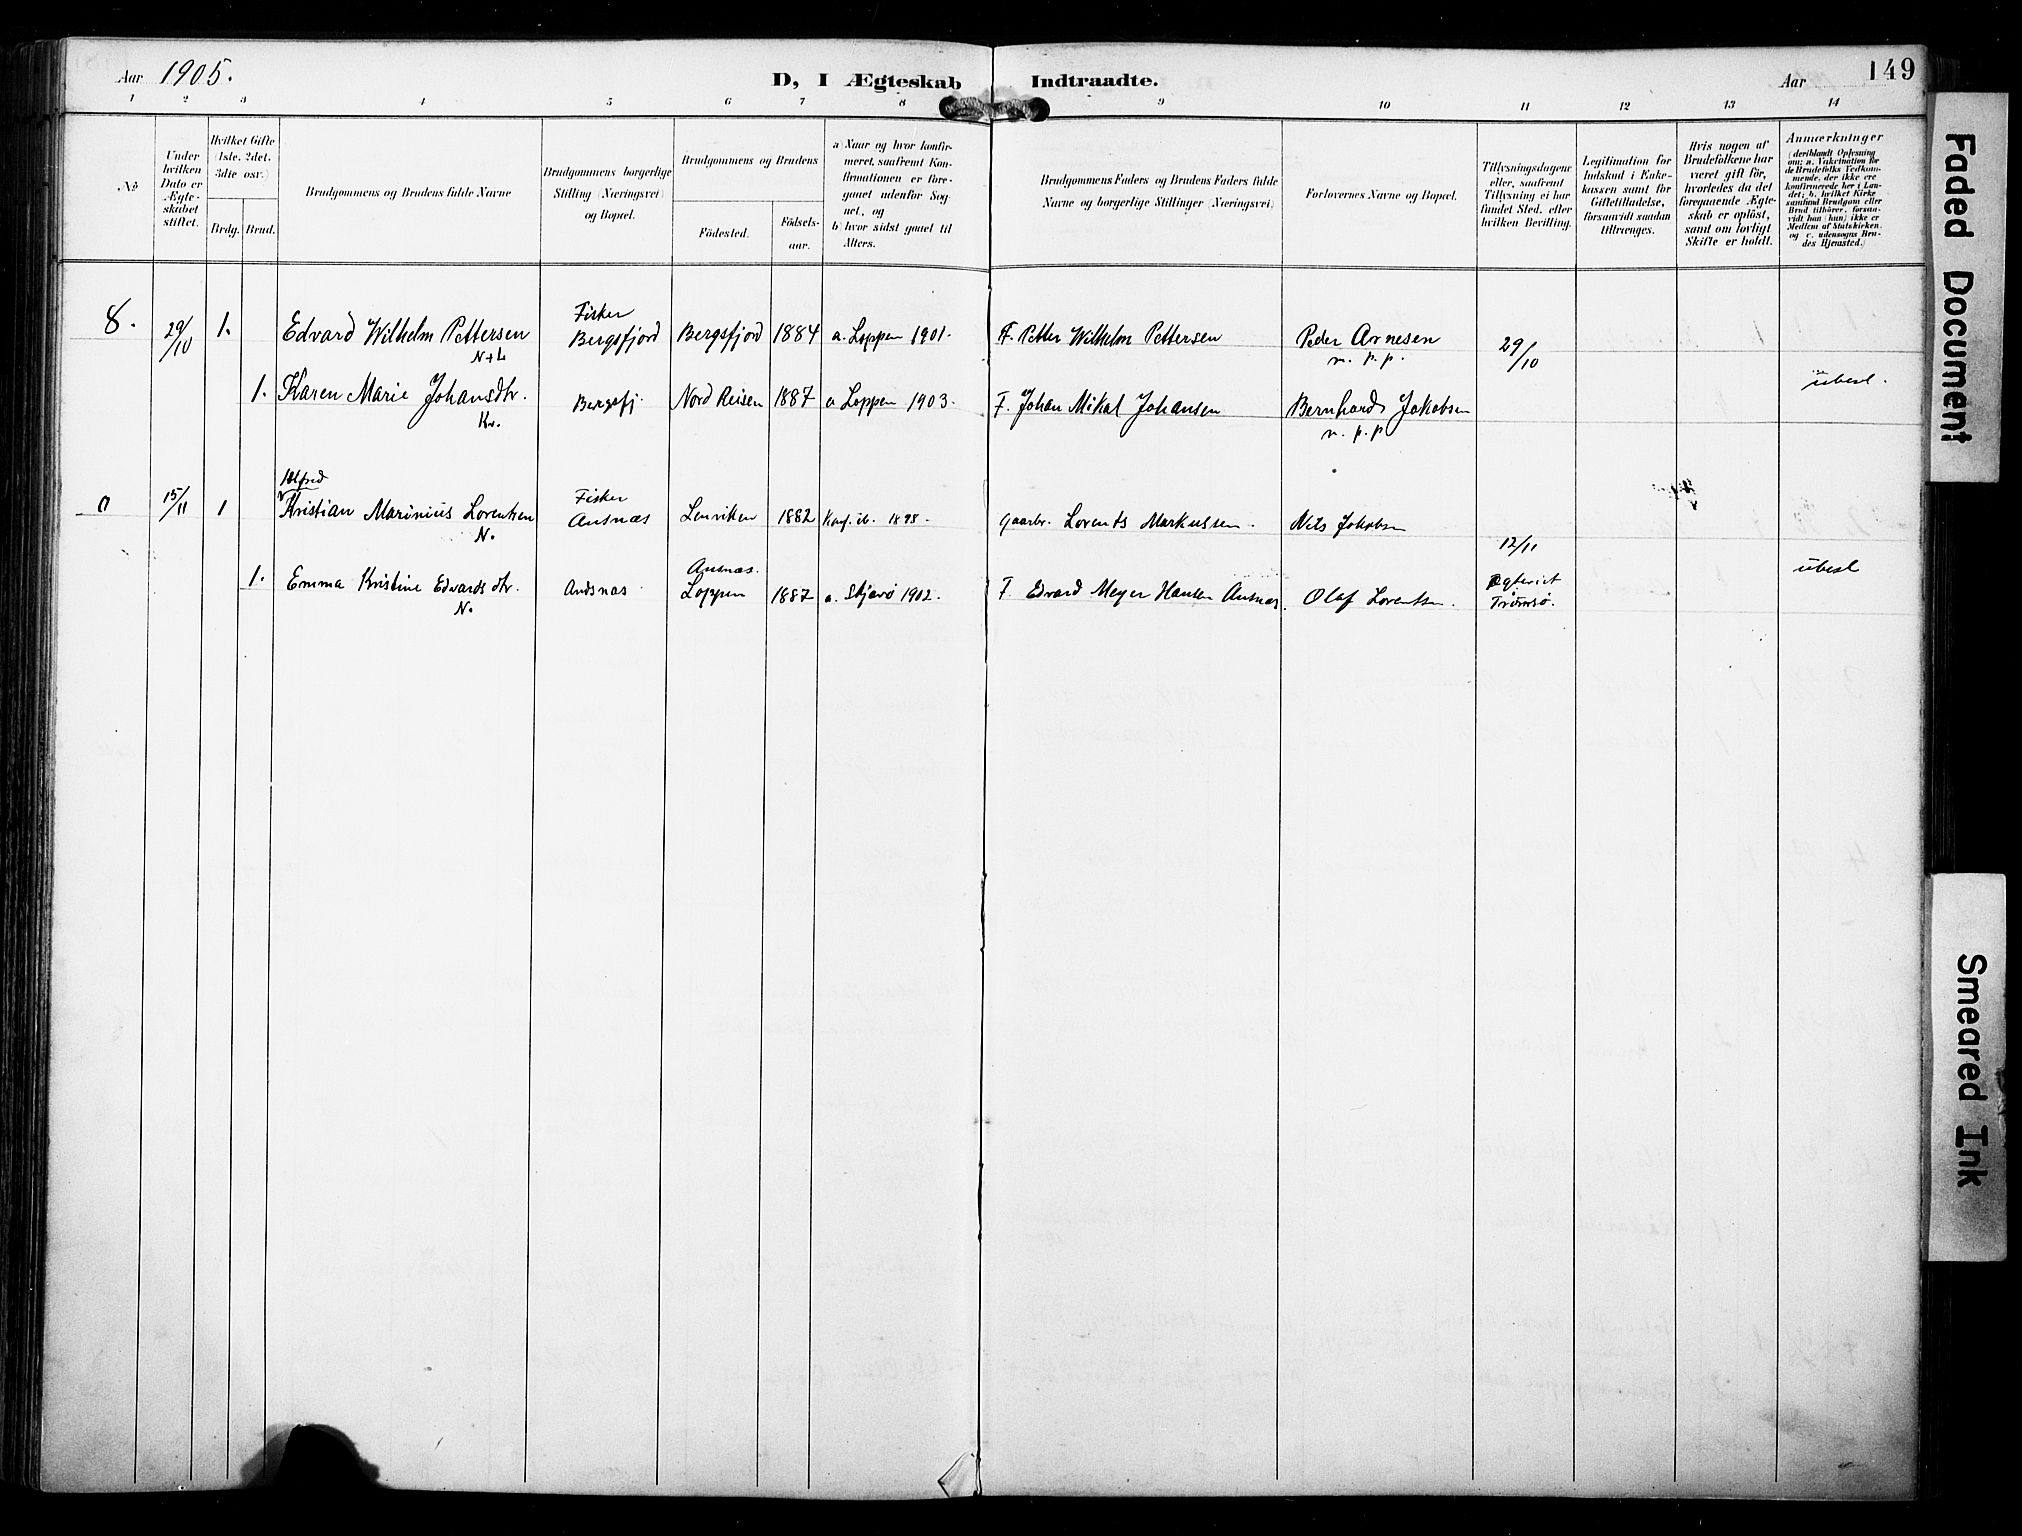 Aar 1905.
D, I Ægteskab Indtraadte.
Aar
149
1 2 3 4 5 6 7 8 9 10 11 12 13 14
No
Under hvilken Dato er Ægteskabet stiftet.
Hvilket Gifte (1ste, 2det, 3die osv.)
Brdg. Brud.
Brudgommens og Brudens fulde Navne
Brudgommens borgerlige Stilling (Næringsvei) og Bopæl.
Brudgommens og Brudens
Födested.
Födsels-aar.
a) Naar og hvor konfirmeret, saafremt Konfirmationen er foregaaet udenfor Sognet, og
b) hvor sidst gaaet til Alters.
Brudgommens Faders og Brudens Faders fulde Navne og borgerlige Stillinger (Næringsvei)
Forlovernes Navne og Bopæl.
Tillysningsdagene eller, saafremt Tillysning ei har fundet Sted, efter hvilken Bevilling.
Legitimation for Indskud i Enkekassen samt for Giftetilladelse, forsaavidt saadan tiltrænges.
Hvis nogen af Brudefolkene har været gift för, hvorledes da det foregaaende Ægteskab er oplöst, samt om lovligt Skifte er holdt.
Anmærkninger
(deriblandt Oplysning om: a. Vakcination for de Brudefolks Vedkommende, der ikke ere konfirmerede her i Landet; b. hvilket Kirkesamfund Brudgom eller Brud tilhörer, forsaavidt han (hun) ikke er Medlem af Statskirken, og c. udensogns Brudes Hjemsted.)
8. 29/10 1. Edvard Wilhelm Pettersen Fisker Bergsfjord Bergsfjord 1884 a. Loppen 1901. F. Petter Wilhelm Pettersen Peder Arnesen 29/10
N+L m. p. p.
1. Karen Marie Johansdtr. Bergsfj. Nord Reisen 1887 a Loppen 1903. F. Johan Mikal Johansen Bernhard Jakobsen ubesl.
Kv. m. p. p
Alfred
15/11 1 Kristian Marinius Lorentsen Fisker Ausnæs Lenviken 1882 Konf. ib. 1898. Gaarbr. Lorents Markussen. Nils Jakobsen
N. 12/11
1. Emma Kristine Edvardsdtr. Andsnæs Ausnæs. Loppen 1887 a. Skjærvø 1902. F. Edvard Meyer Hansen Ausnæs. Olaf Lorentsen. Tromsø. ubesl
N.
Faded Document
Smeared Ink